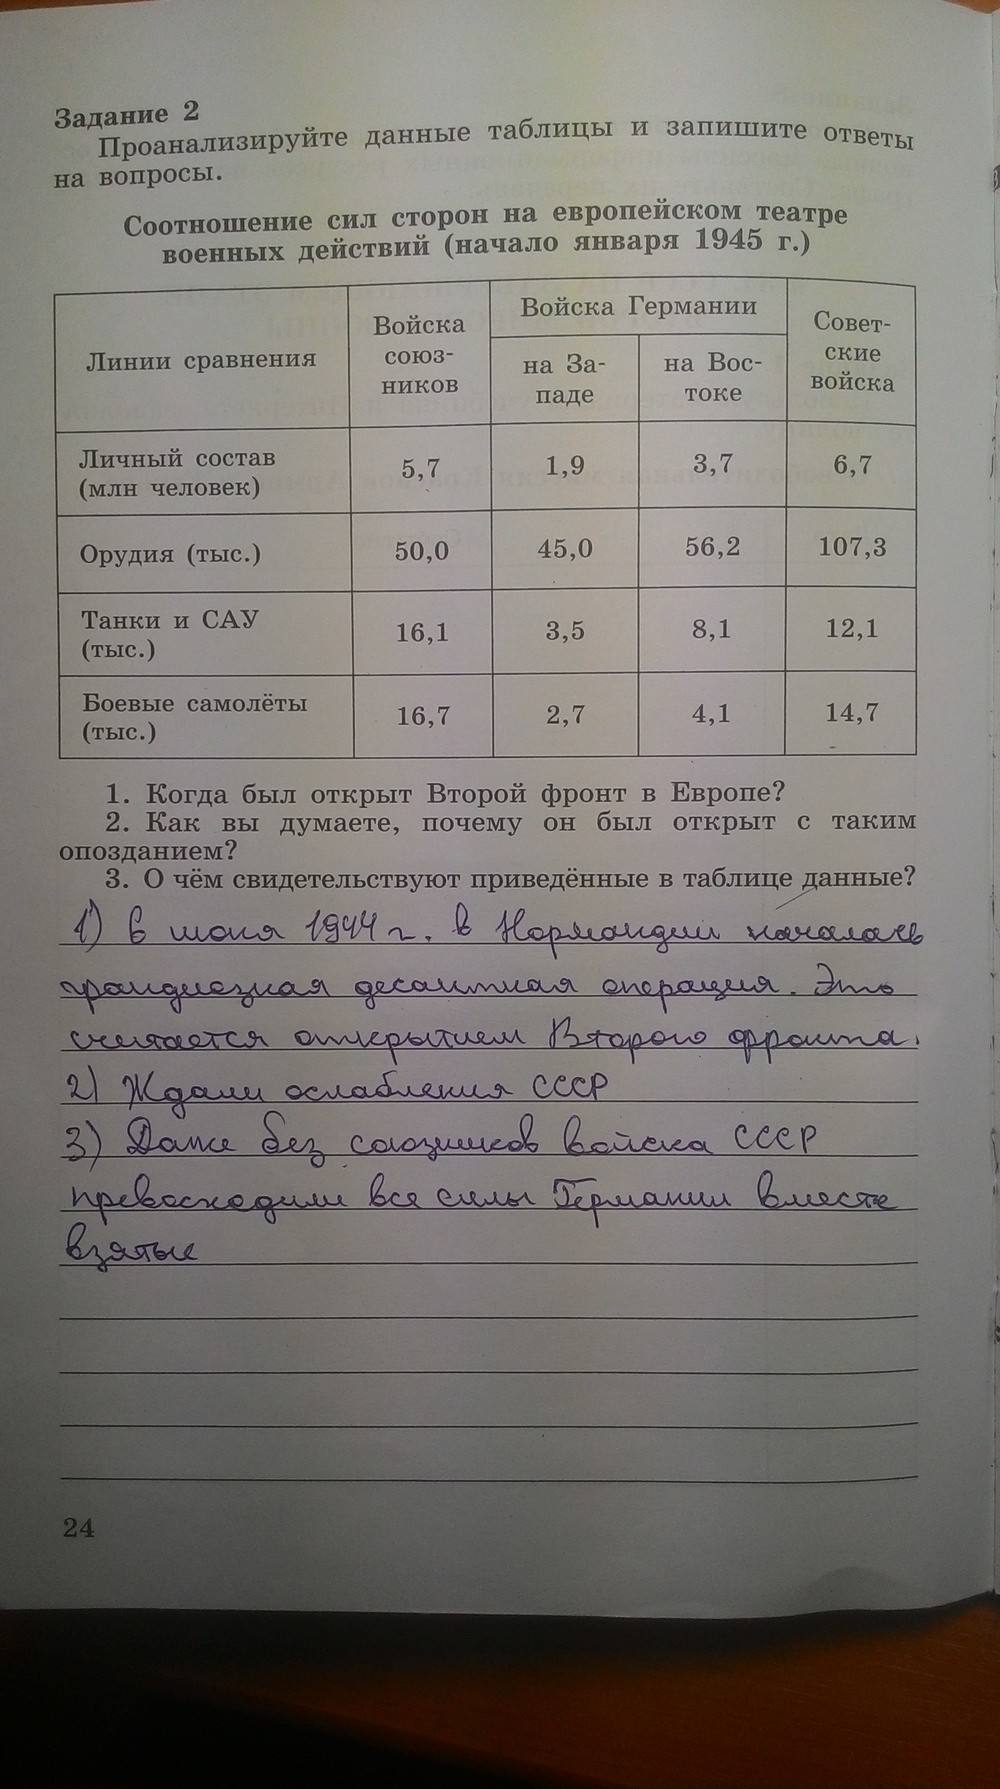 Задание 2
Проанализируйте данные таблицы и запишите ответы
на вопросы.
Соотношение сил сторон на европейском театре
военных действий (начало января 1945 г.)
Линии сравнения
Войска
союз-
ников
Войска Германии
на За-
паде
на Вос-
токе
Совет-
ские
войска
Личный состав
(млн человек)
5,7
1,9
3,7
6,7
Орудия (тыс.)
50,0
45,0
56,2
107,3
Танки и САУ
(тыс.)
16,1
3,5
8,1
12,1
Боевые самолёты
(тыс.)
16,7
2,7
4,1
14,7
1. Когда был открыт Второй фронт в Европе?
2. Как вы думаете, почему он был открыт с таким
опозданием?
3. О чём свидетельствуют приведённые в таблице данные?
1) 6 июня 1944 г. в Нормандии началась
грандиозная десантная операция. Это
считается открытием Второго фронта.
2) Ждали ослабления СССР
3) Даже без союзников войска СССР
превосходили все силы Германии вместе
взятые
24